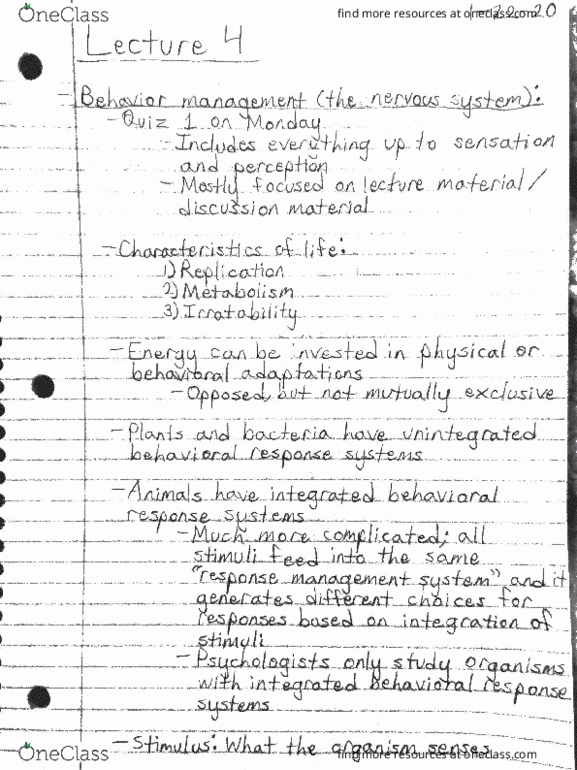 OneClass
find more resources at oneclass.com
20
Lecture 4
- Behavior management (the nervous system):
- Quiz 1 on Monday
- Includes everything up to sensation
and perception
- Mostly focused on lecture material/
discussion material
- Characteristics of life:
1) Replication
2) Metabolism
3) Irratability
- Energy can be invested in physical or
behavioral adaptations
- Opposed, but not mutually exclusive
- Plants and bacteria have unintegrated
behavioral response systems
- Animals have integrated behavioral
response systems
- Much more complicated; all
stimuli feed into the same
"response management system" and it
generates different choices for
responses based on integration of
stimuli
- Psychologists only study organisms
with integrated behavioral response
systems
- Stimulus: What the organism senses
OneClass
find more resources at oneclass.com